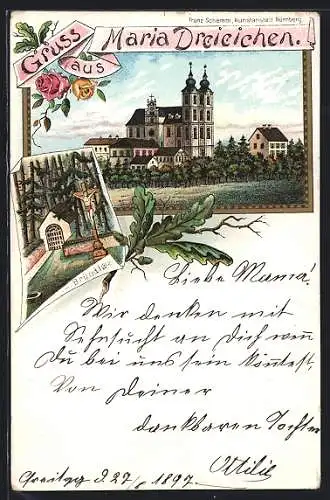 Franz Schemm, Kunstanstalt Nürnberg.
Gruss aus Maria Dreieichen.
Bründl
Liebe Mama!
Wir denken mit
Sehnsucht an Dich wenn
Du bei uns sein könntest,
Von Deiner
dankbaren Tochter
Ottilie
d. 27/ 1897